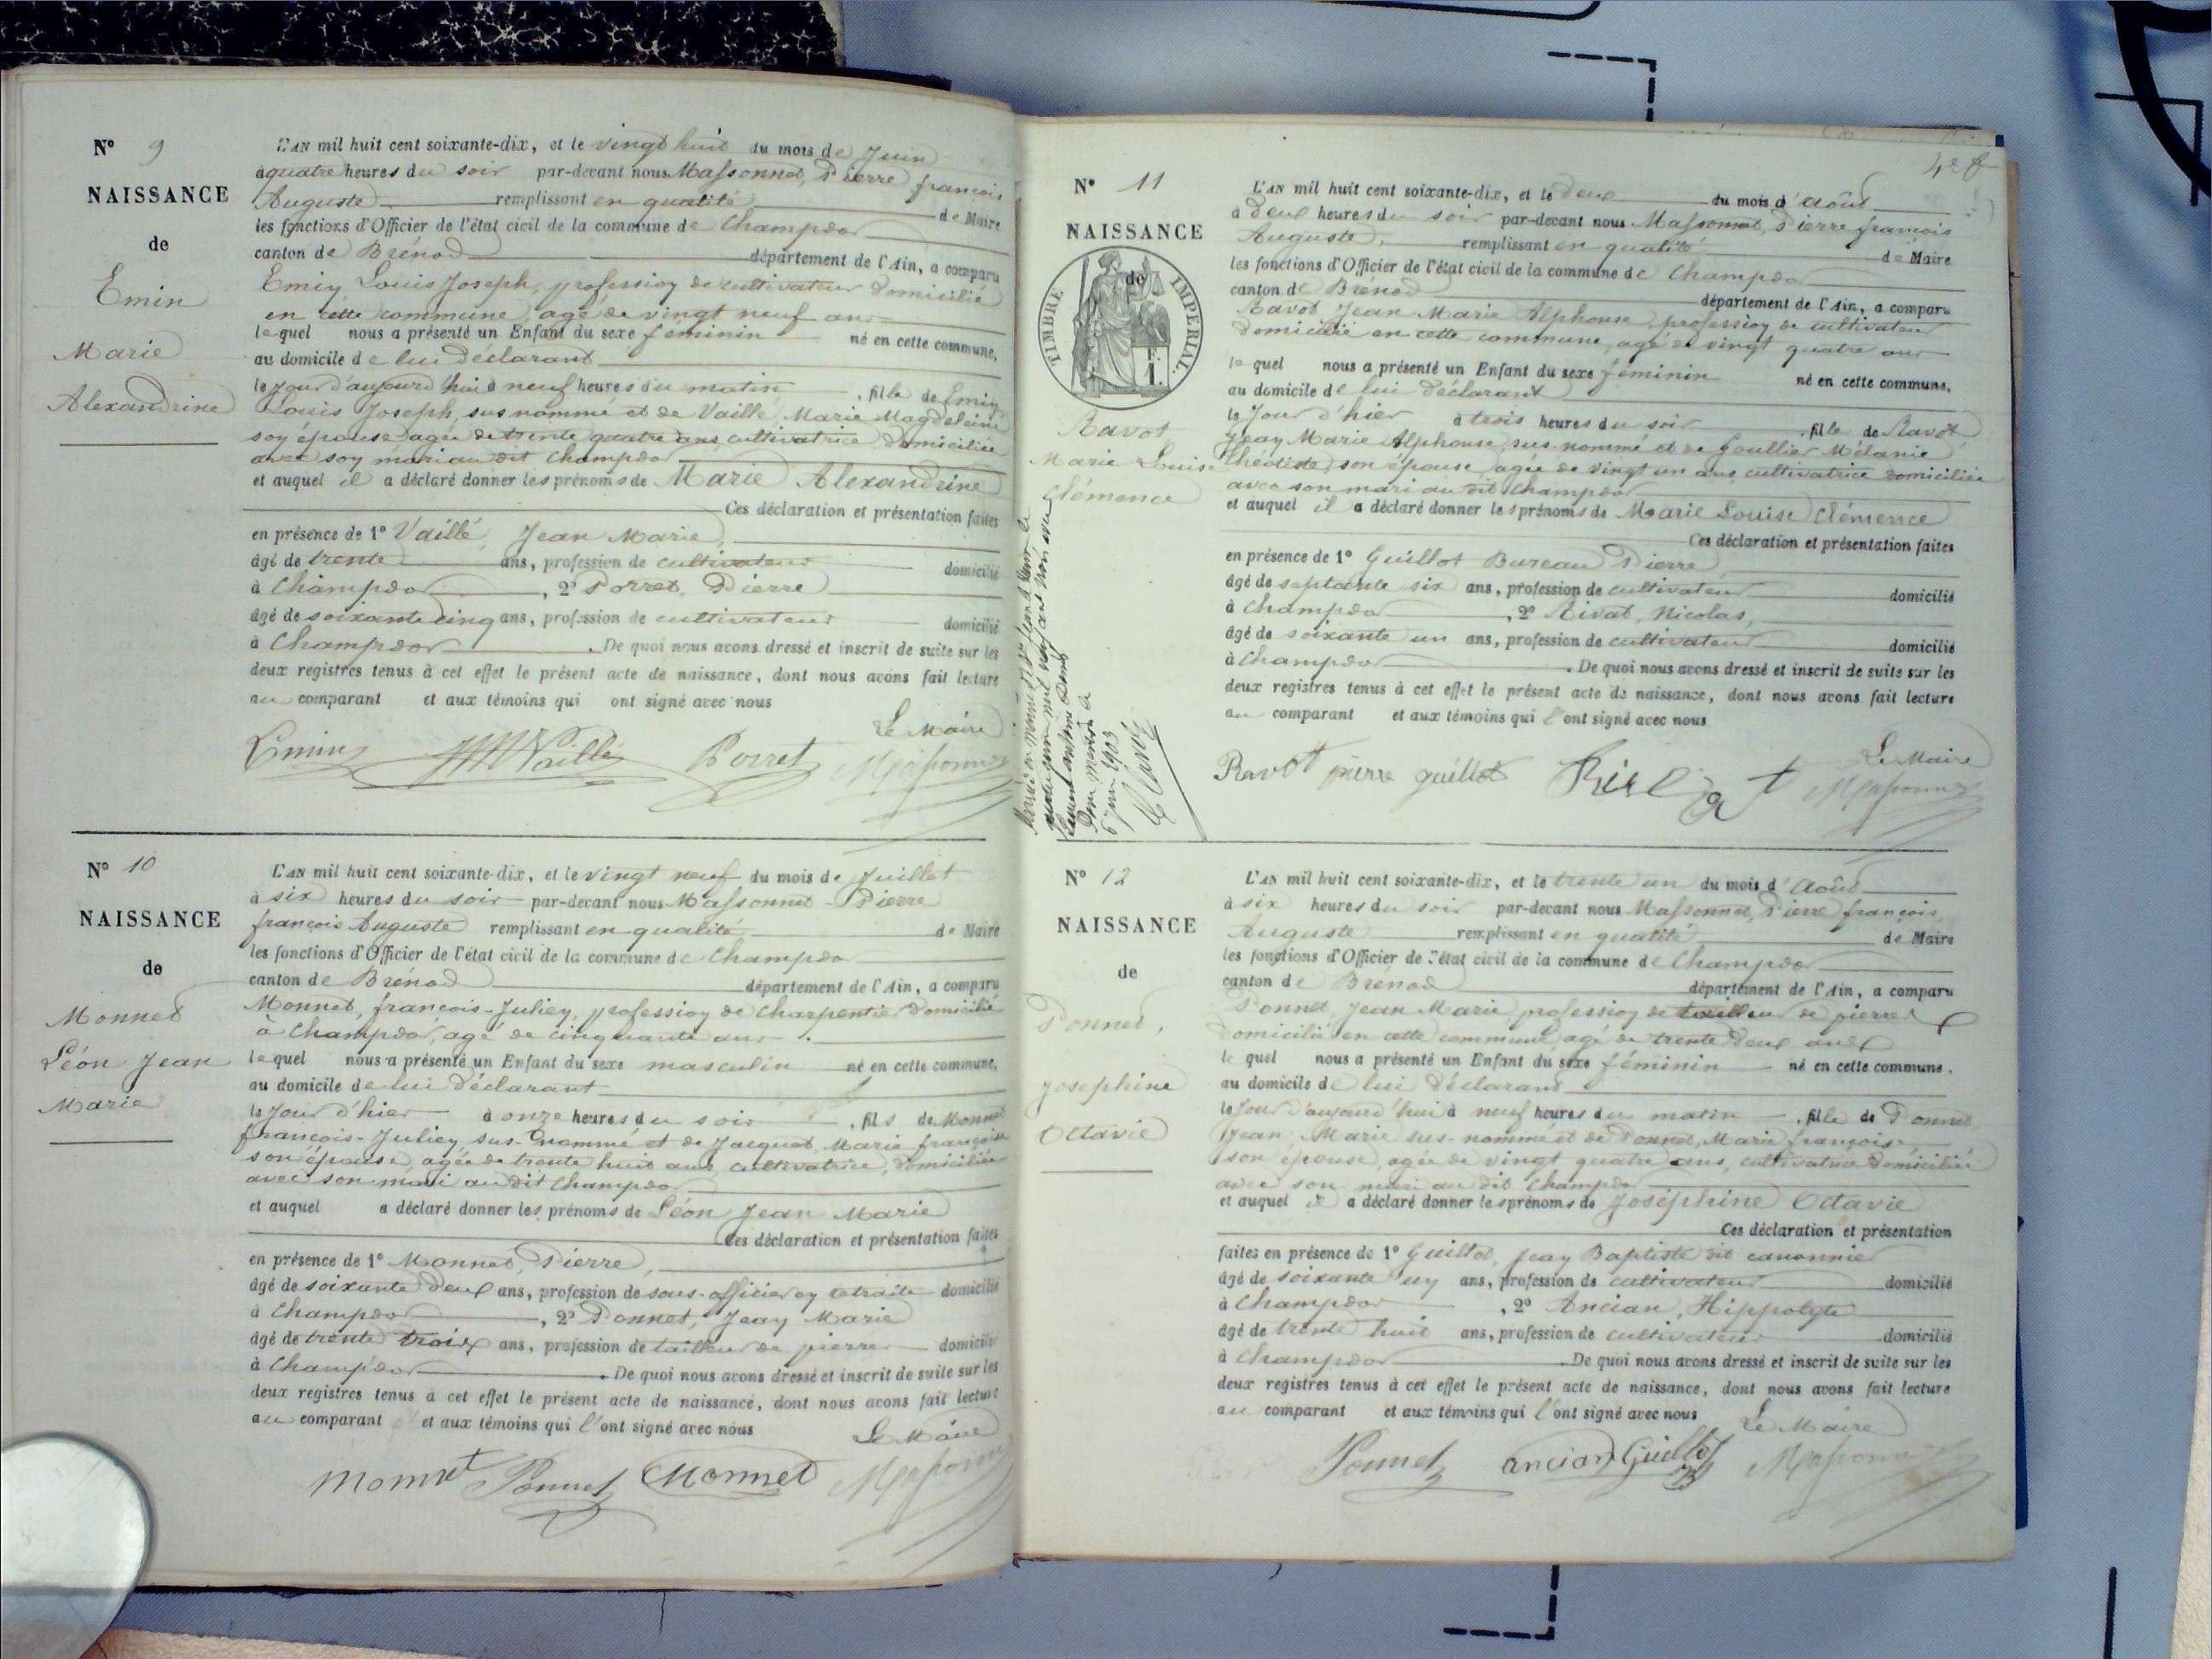 N° 9
NAISSANCE
de
Emin
Marie
Alexandrine
L'AN mil huit cent soixante-dix, et le vingt huit du mois de Juin
à quatre heures du soir par-devant nous Massonnet, Pierre françois
Auguste remplissant en qualité de Maire
les fonctions d'Officier de l'état civil de la commune de Champdor
canton de Brénod département de l'Ain, a comparu
Emin Louis Joseph, profession de cultivateur domicilié
en cette commune, agé de vingt neuf ans
lequel nous a présenté un Enfant du sexe féminin né en cette commune,
au domicile de lui déclarant
le jour d'aujourd'hui à neuf heures du matin, fille de Emin
Louis Joseph, sus nommé et de Vaillé, Marie Magdeleine
son épouse agée de trente quatre ans, cultivatrice domiciliée
avec son mari au dit Champdor
et auquel il a déclaré donner les prénoms de Marie Alexandrine
Ces déclaration et présentation faites
en présence de 1° Vaillé, Jean Marie,
âgé de trente ans, profession de cultivateur domicilié
à Champdor, 2° Porret, Pierre
âgé de soixante cinq ans, profession de cultivateur domicilié
à Champdor. De quoi nous avons dressé et inscrit de suite sur les
deux registres tenus à cet effet le présent acte de naissance, dont nous avons fait lecture
au comparant et aux témoins qui ont signé avec nous
Le Maire
Emin JM Vaillé Porret Massonnet
N° 10
NAISSANCE
de
Monnet
Léon Jean
Marie
L'AN mil huit cent soixante-dix, et le vingt neuf du mois de Juillet
à six heures du soir par-devant nous Massonnet Pierre
françois Auguste remplissant en qualité de Maire
les fonctions d'Officier de l'état civil de la commune de Champdor
canton de Brénod département de l'Ain, a comparu
Monnet, françois-Julien, profession de Charpentier domicilié
à Champdor, agé de cinquante ans.
lequel nous a présenté un Enfant du sexe masculin né en cette commune,
au domicile de lui déclarant
le jour d'hier à onze heures du soir, fils de Monnet
françois-Julien, sus-nommé et de Jacquet, Marie françoise
son épouse, agée de trente huit ans, cultivatrice, domiciliée
avec son mari au dit Champdor
et auquel a déclaré donner les prénoms de Léon Jean Marie
Ces déclaration et présentation faites
en présence de 1° Monnet, Pierre,
âgé de soixante deux ans, profession de sous-officier en retraite domicilié
à Champdor, 2° Ponnet, Jean Marie
âgé de trente trois ans, profession de tailleur de pierre domicilié
à Champdor. De quoi nous avons dressé et inscrit de suite sur les
deux registres tenus à cet effet le présent acte de naissance, dont nous avons fait lecture
au comparant et aux témoins qui l'ont signé avec nous
Le Maire
Monnet Ponnet Monnet Massonnet
4e f
N° 11
NAISSANCE
de
TIMBRE IMPERIAL
Ravot
Marie Louise
Clémence
L'AN mil huit cent soixante-dix, et le deux du mois d'Août
à deux heures du soir par-devant nous Massonnet, Pierre françois
Auguste, remplissant en qualité de Maire
les fonctions d'Officier de l'état civil de la commune de Champdor
canton de Brénod département de l'Ain, a comparu
Ravot Jean Marie Alphonse, profession de cultivateur
domicilié en cette commune, agé de vingt quatre ans
le quel nous a présenté un Enfant du sexe féminin né en cette commune,
au domicile de lui déclarant
le jour d'hier à trois heures du soir, fille de Ravot
Jean Marie Alphonse, sus nommé et de Goullier Mélanie
Théotiste, son épouse, agée de vingt un ans, cultivatrice domiciliée
avec son mari au dit Champdor
et auquel il a déclaré donner les prénoms de Marie Louise Clémence
Ces déclaration et présentation faites
en présence de 1° Guillot Bureau Pierre
âgé de septante six ans, profession de cultivateur domicilié
à Champdor, 2° Rivat, Nicolas,
âgé de soixante un ans, profession de cultivateur domicilié
à Champdor. De quoi nous avons dressé et inscrit de suite sur les
deux registres tenus à cet effet le présent acte de naissance, dont nous avons fait lecture
au comparant et aux témoins qui l'ont signé avec nous
Le Maire
Ravot pierre guillot Massonnet
N° 12
NAISSANCE
de
Ponnet,
Josephine
Octavie
L'AN mil huit cent soixante-dix, et le trente un du mois d'Août
à six heures du soir par-devant nous Massonnet, Pierre françois,
Auguste remplissant en qualité de Maire
les fonctions d'Officier de l'état civil de la commune de Champdor
canton de Brénod département de l'Ain, a comparu
Ponnet, Jean Marie, profession de tailleur de pierre
domicilié en cette commune, agé de trente deux ans
le quel nous a présenté un Enfant du sexe féminin né en cette commune,
au domicile de lui déclarant
le jour d'aujourd'hui à neuf heures du matin, fille de Ponnet
Jean Marie sus-nommé et de Ponnet, Marie françoise,
son épouse, agée de vingt quatre ans, cultivatrice domiciliée
avec son mari au dit Champdor
et auquel il a déclaré donner les prénoms de Joséphine Octavie
Ces déclaration et présentation
faites en présence de 1° Guillot, Jean Baptiste dit canonnier
âgé de soixante un ans, profession de cultivateur domicilié
à Champdor, 2° Ancian, Hippolyte
âgé de trente huit ans, profession de cultivateur domicilié
à Champdor. De quoi nous avons dressé et inscrit de suite sur les
deux registres tenus à cet effet le présent acte de naissance, dont nous avons fait lecture
au comparant et aux témoins qui l'ont signé avec nous
Le Maire
Ponnet ancian Guillot Massonnet